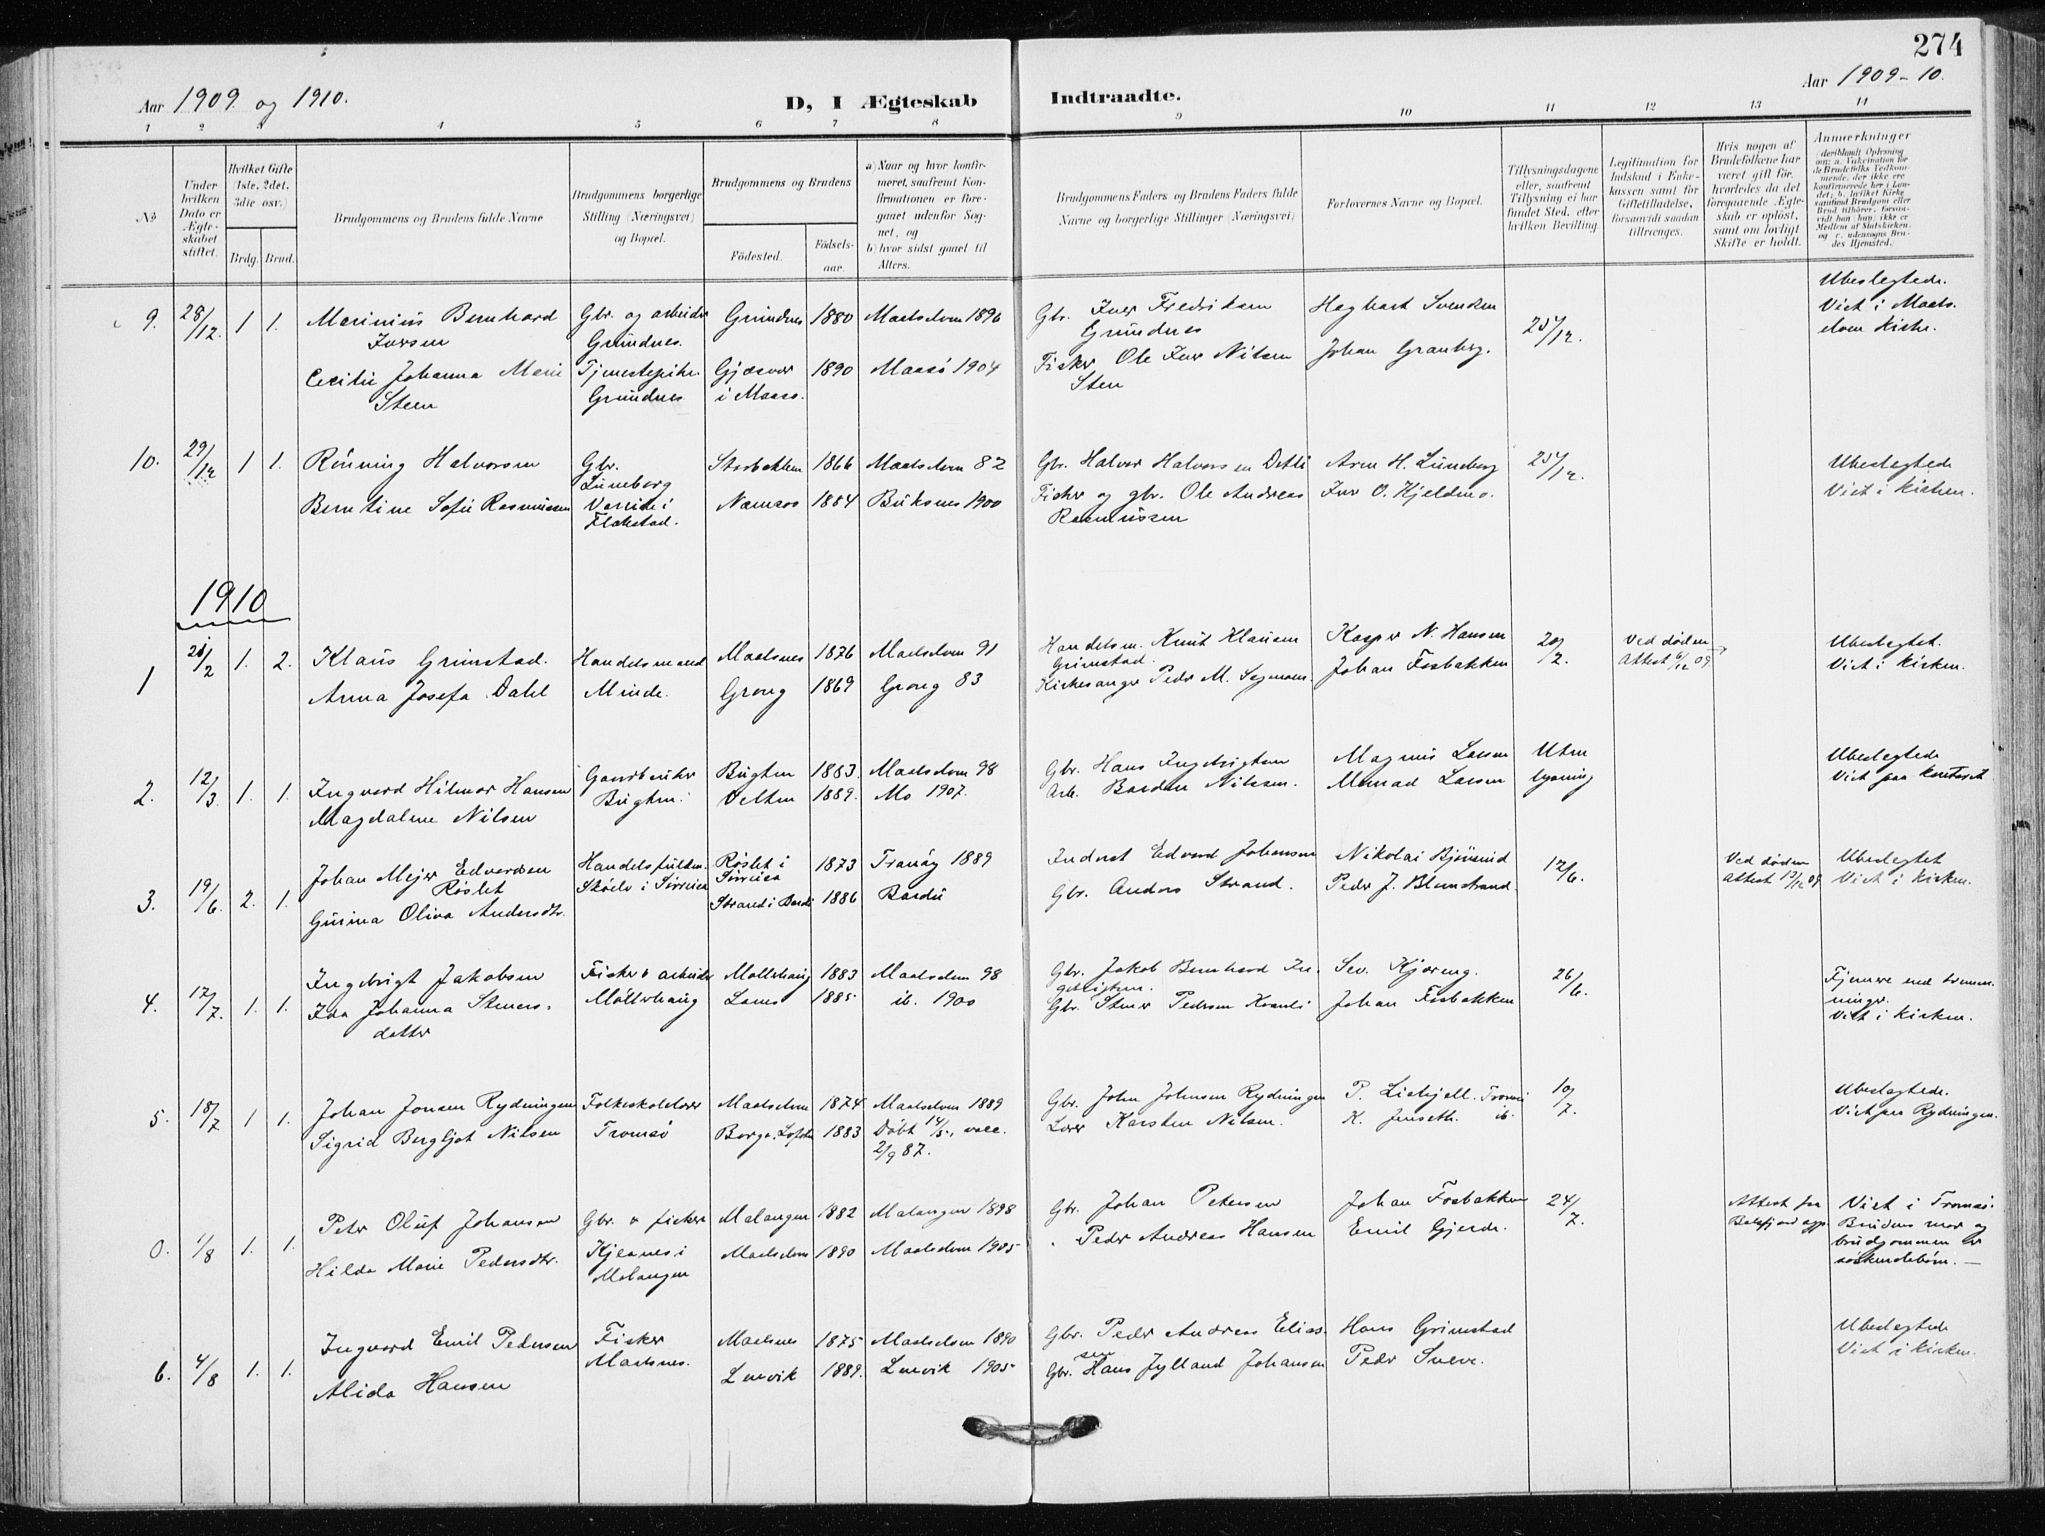 274
Aar 1909 og 1910.
D, I Ægteskab Indtraadte.
Aar 1909-10.
1 2 3 4 5 6 7 8 9 10 11 12 13 14
No
Under hvilken Dato er Ægteskabet stiftet.
Hvilket Gifte (1ste, 2det, 3die osv.)
Brdg. Brud.
Brudgommens og Brudens fulde Navne
Brudgommens borgerlige Stilling (Næringsvei) og Bopæl.
Brudgommens og Brudens
Födested.
Födselsaar.
a) Naar og hvor konfirmeret, saafremt Konfirmationen er foregaaet udenfor Sognet, og
b) hvor sidst gaaet til Alters.
Brudgommens Faders og Brudens Faders fulde Navne og borgerlige Stillinger (Næringsvei)
Forlovernes Navne og Bopæl.
Tillysningsdagene eller, saafremt Tillysning ei har fundet Sted, efter hvilken Bevilling.
Legitimation for Indskud i Enkekassen samt for Giftetilladelse, forsaavidt saadan tiltrænges.
Hvis nogen af Brudefolkene har været gift før, hvorledes da det foregaaende Ægteskab er opløst, samt om lovligt Skifte er holdt.
Anmerkninger (deriblandt Oplysning om: a. Vakcination for de Brudefolks Vedkommende, der ikke ere konfirmerede her i Landet; b. hvilket Kirkesamfund Brudgom eller Brud tilhører, forsaavidt han/hun ikke er Medlem af Statskirken, og c. udensogns Brudes Hjemsted.)
9. 28/12. 1 1. Marinius Bernhard Iversen Gbr. og arbeider Grundnes. Grundnes 1880 Maalselven 1896 Gbr. Iver Fredriksen Grundnes Hagbart Svendsen 25/12. Ubeslegtede. Viet i Maalselven kirke.
Cecilie Johanna Marie Steen Tjenestepike. Grundnes Gjæsvær i Maasø. 1890 Maasø 1904 Fisker Ole Iver Nilsen Sten Johan Granberg.
10. 29/12 1 1. Rönning Halvorsen Gbr. Luneborg 1866 Maalselven 82 Gbr. Halvor Halvorsen Detli Arn H. Luneborg 25/12. Ubeslegtede Viet i kirken.
Berntine Sofie Rasmussen Flakstad. Namsos 1884 Buksnes 1900 Fisker og gbr. Ole Andreas Rasmussen Iver O. Kjeldmo.
1910
1 /2 1. 2. Klaus Grimstad. Handelsmand Minde. Maalsnes 1876 Maalselven 91 Handelsm. Knut Klausen Grimstad. Kasper N. Hansen 20/2. Ved døden Attest 6/12 09. Ubeslegtet. Viet i kirken.
Anna Josefa Dahl Grong 1869 Grong 83 Kirkesanger Peder M. Johan Fosbakken
2. 12/3 1. 1. Ingvard Hilmar Hansen Gaardbruker Bugten. Bugten 1883. Maalselven 98 Gbr. Hans Ingebrigtsen Magnus Larsen Uten lysning Ubeslegtede Viet paa kontoret
Magdalene Nilsen 1889. Mo 1907. Arb. Nilssen. Larsen
3. 19/6. 2. 1. Johan Mejer Edvardsen Røslet Handelsfuldm. Skøelv i Sørreisa Røslet i Sørreisa 1873 Tranøy 1889 Inderst Edvard Johansen Nikolai 12/6. Ved døden Attest 13/12 09 Ubeslegtet Viet i kirken.
Gurina Oliva Andersdtr. Strand i Bardu 1886 Bardu Gbr. Anders Strand. Peder J. Blomstrand.
4. 17/7. 1. 1. Ingebrigt Jakobsen Fisker & arbeider Mollerhaug Mollerhaug 1883 Maalselven 98 Gbr. Jakob Bernhard Ingebrigtsen. Sev. Kjæreng. 26/6. Fjernere end tremenninger. Viet i kirken.
Ida Johanna Steinersdatter 1885 ib. 1900 Gbr. Steiner Pedersen Johan Fosbakken
5. 18/7 1 1. Johan Jonsen Rydningen Folkeskolelærer Tromsø Maalselven 1874 Maalselven 1889 Gbr. John Johnsen Rydningen P. Liekjell. Tromsø 10/7. Ubeslegtede. Viet paa Rydningen.
Sigrid Bergljot Nilsen Borge, Lofoten 1883 Döbt 14/5, vacc. 2/9 87. Lærer Karsten Nilsen. K. Jenseth. ib.
0. 1/8 1. 1. Peter Oluf Johansen Gbr. & fisker Malangen 1882 Malangen 1898 Gbr. Johan Petersen Johan Fosbakken 24/7. Attest fra Balsfjord opp. Viet i Tromsø. Brudens mor og brudgommen er søskendebørn. —
Hilda Marie Pedersdtr. Kjosnes i Malangen Maalselven 1890 Maalselven 1905 Peder Andreas Hansen Emil Gjerde.
6. 4/8 1. 1. Ingvard Emil Pedersen Fisker Maalsnes. Maalsnes 1875 Maalselven 1890 Gbr. Peder Andreas Eliassen Hans Grimstad Ubeslegtede Viet i kirken.
Alida Hansen Lenvik 1889. Lenvik 1905 Gbr. Hans Jylland Johansen Peder